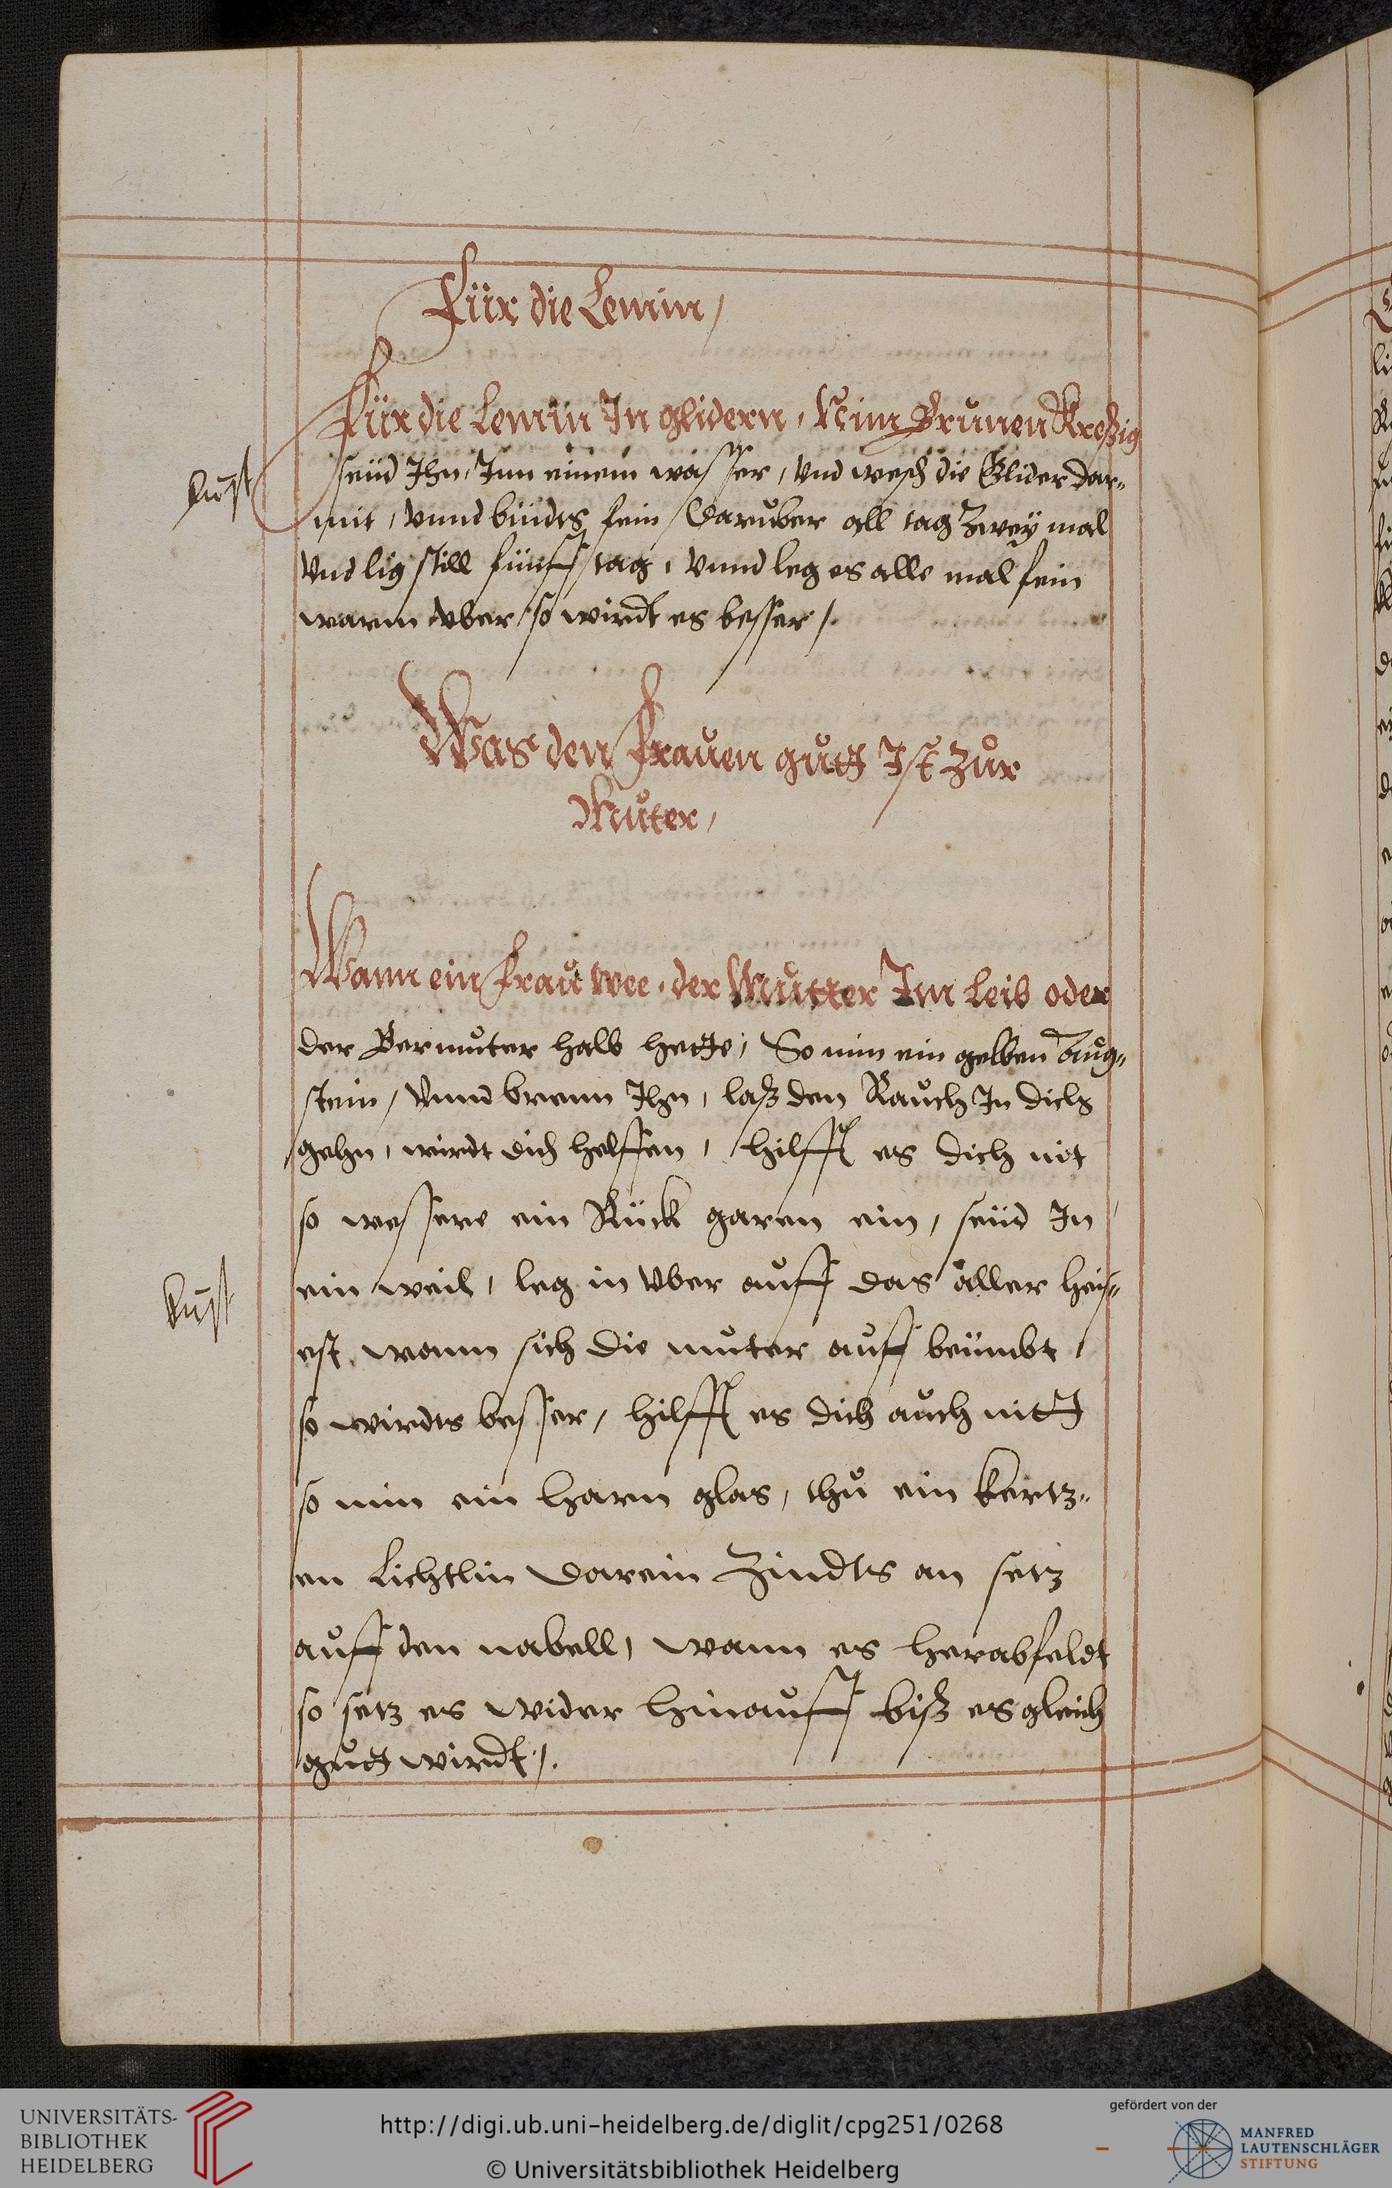 Für die Lemin /
Für die Lemin In glidern, Nim Brunen Kreßig
seüd Ihn, Inn einem wasser, vnd wesch die Glider dar„
mit, vnnd bindts fein Daruber all tag Zweÿ mal
Vnd lig still fünff tag, Vnnd leg es alle mal fein
warm vber so wirdt es besser /.
Was den Frauen gutt Ist Zur
Muter /
Wann ein Frau wee, der Mutter Im Leib oder
der Bermuter halb hette, So nim ein gelben Aug„
stein, Vnnd brenn Ihn, laß den Rauch In dich
gehn, wirdt dich helffen, hilfft es dich nit
so wessere ein Rück garen ein, seüd In
ein weil, leg in Vber auff das aller heis„
est, wann sich die muter auff beümbt,
so wirdts besser, hilfft es dich auch nitt
so nim ein harn glas, thu ein kertz„
en Lichtlin Darein Zindts an setz
auff den nabell, wann es herabfeldt
so setz es wider hinauff biß es gleich
gutt wirdt /.
UNIVERSITÄTS-
BIBLIOTHEK
HEIDELBERG
http://digi.ub.uni-heidelberg.de/diglit/cpg251/0268
© Universitätsbibliothek Heidelberg
gefördert von der
MANFRED
LAUTENSCHLÄGER
STIFTUNG